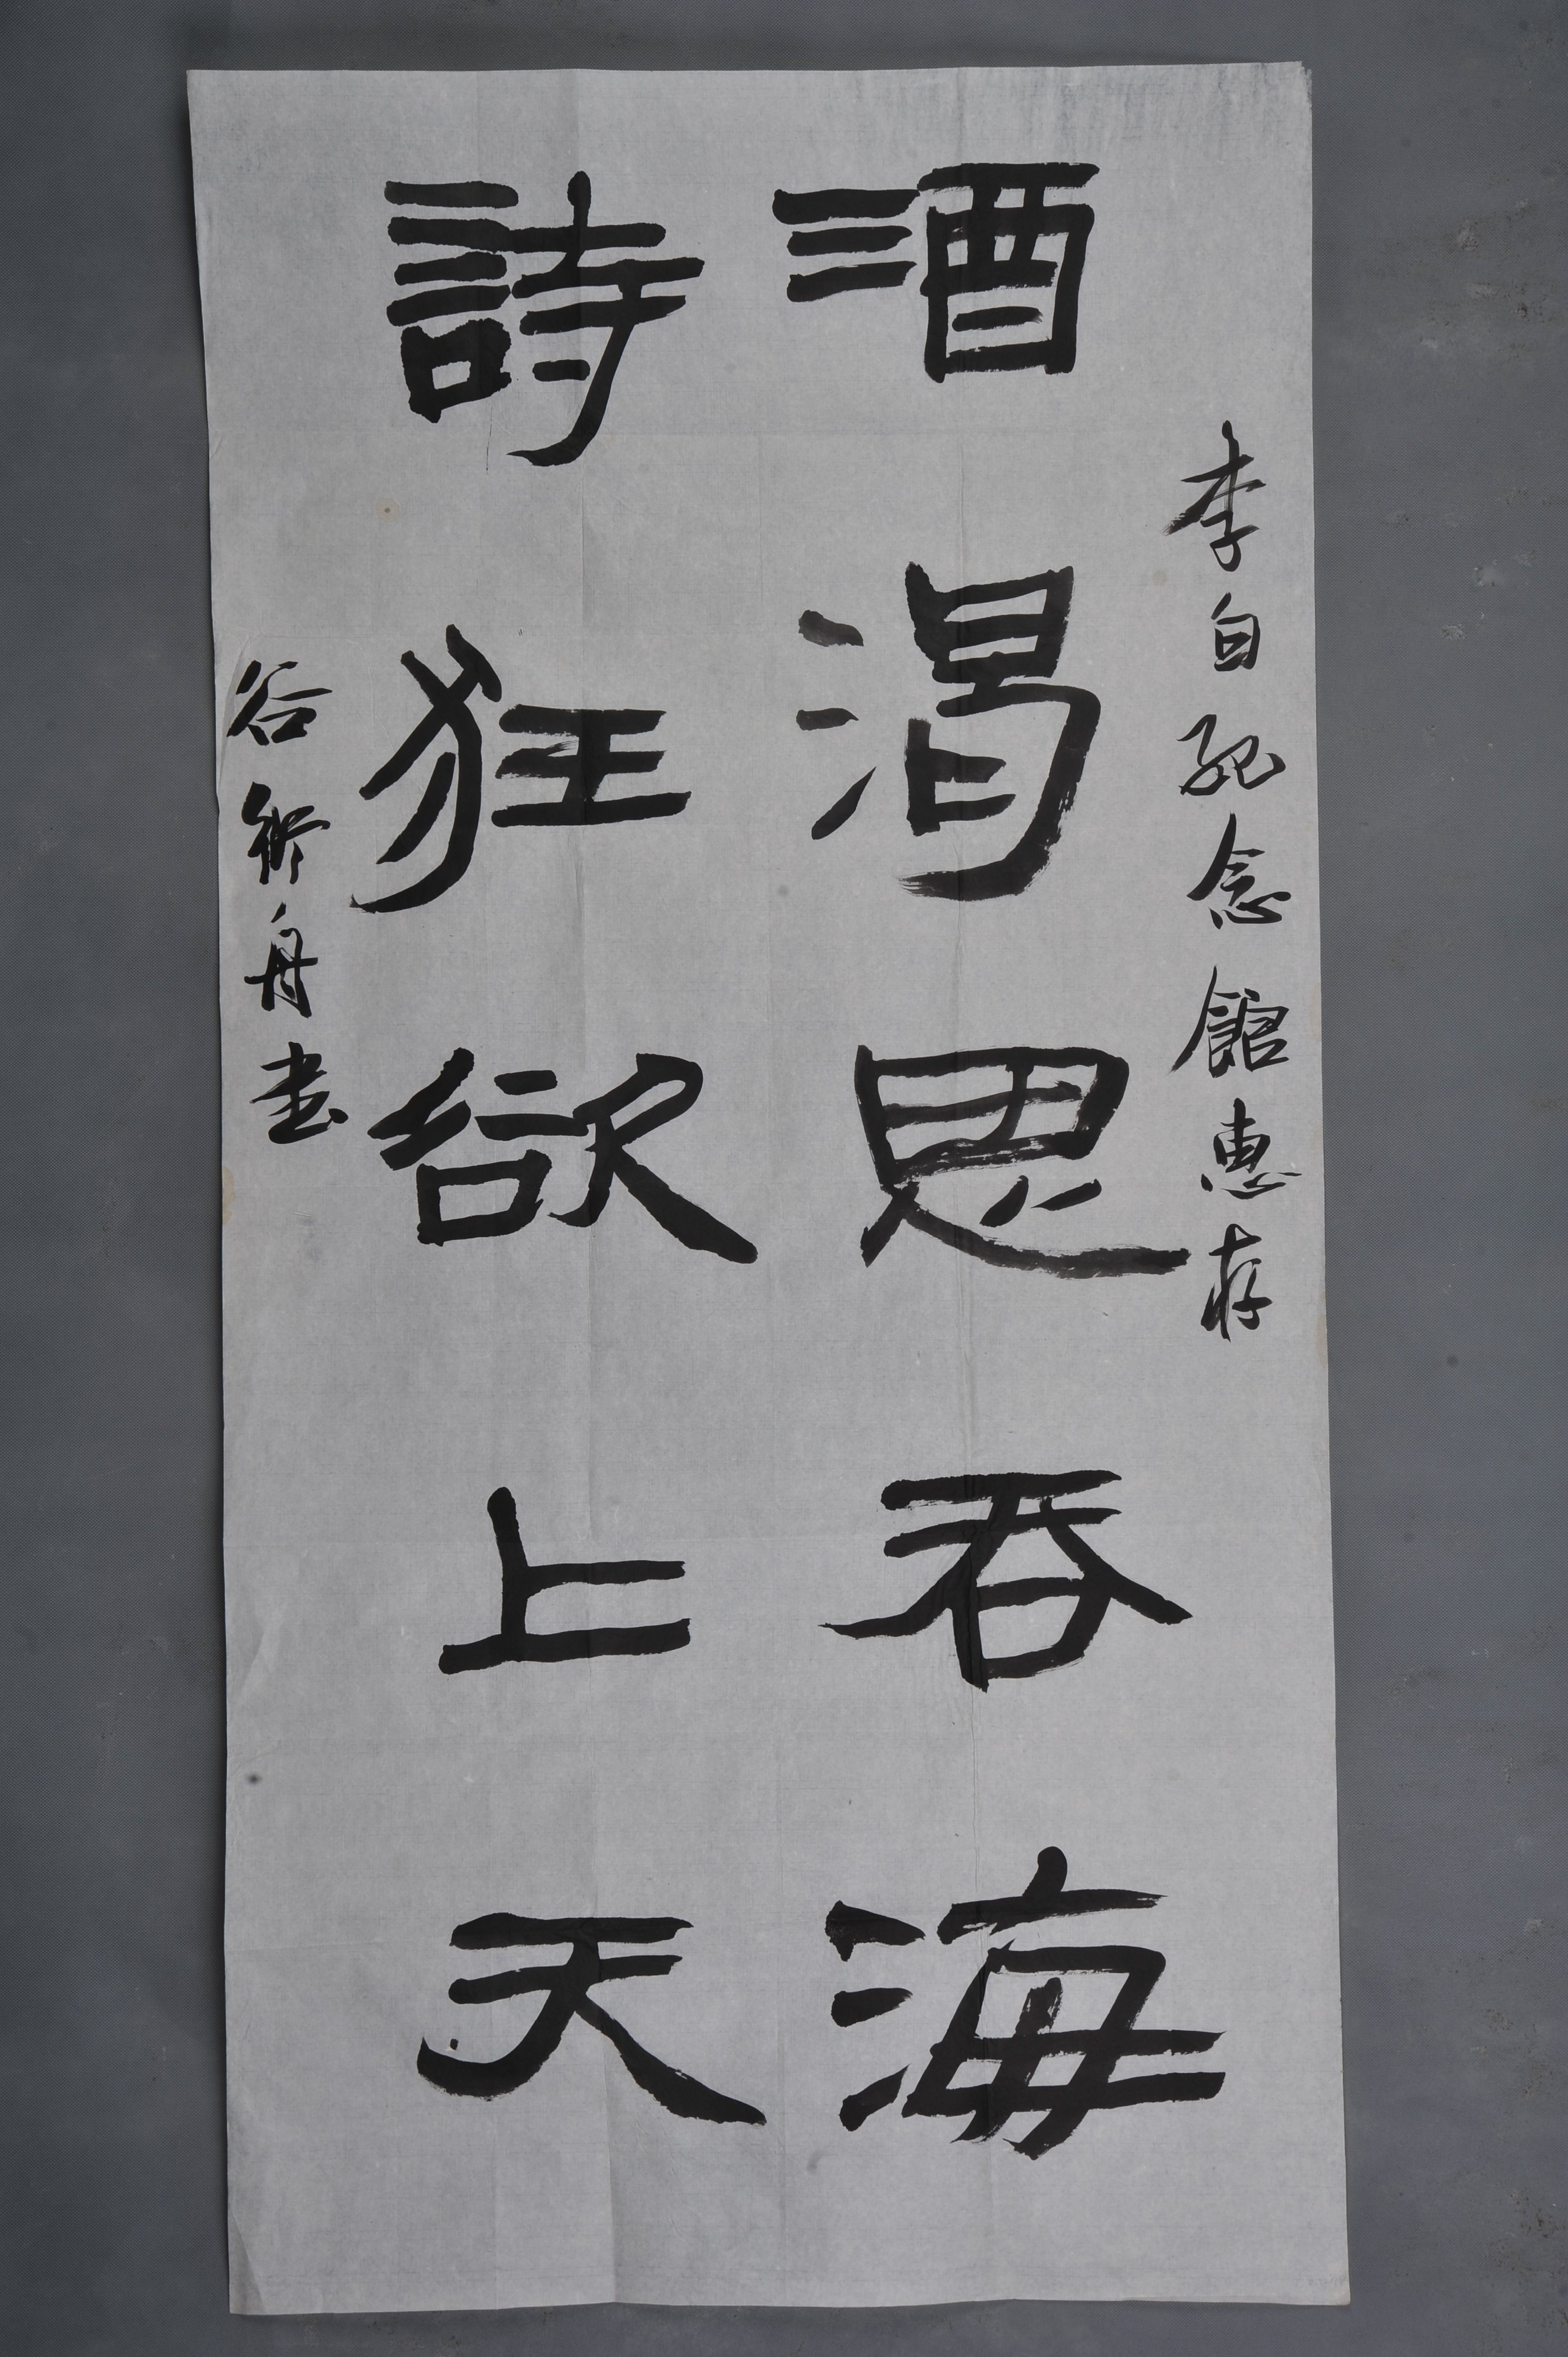 李白紀念館惠存
酒渴思吞海
詩狂欲上天
谷衍舟書